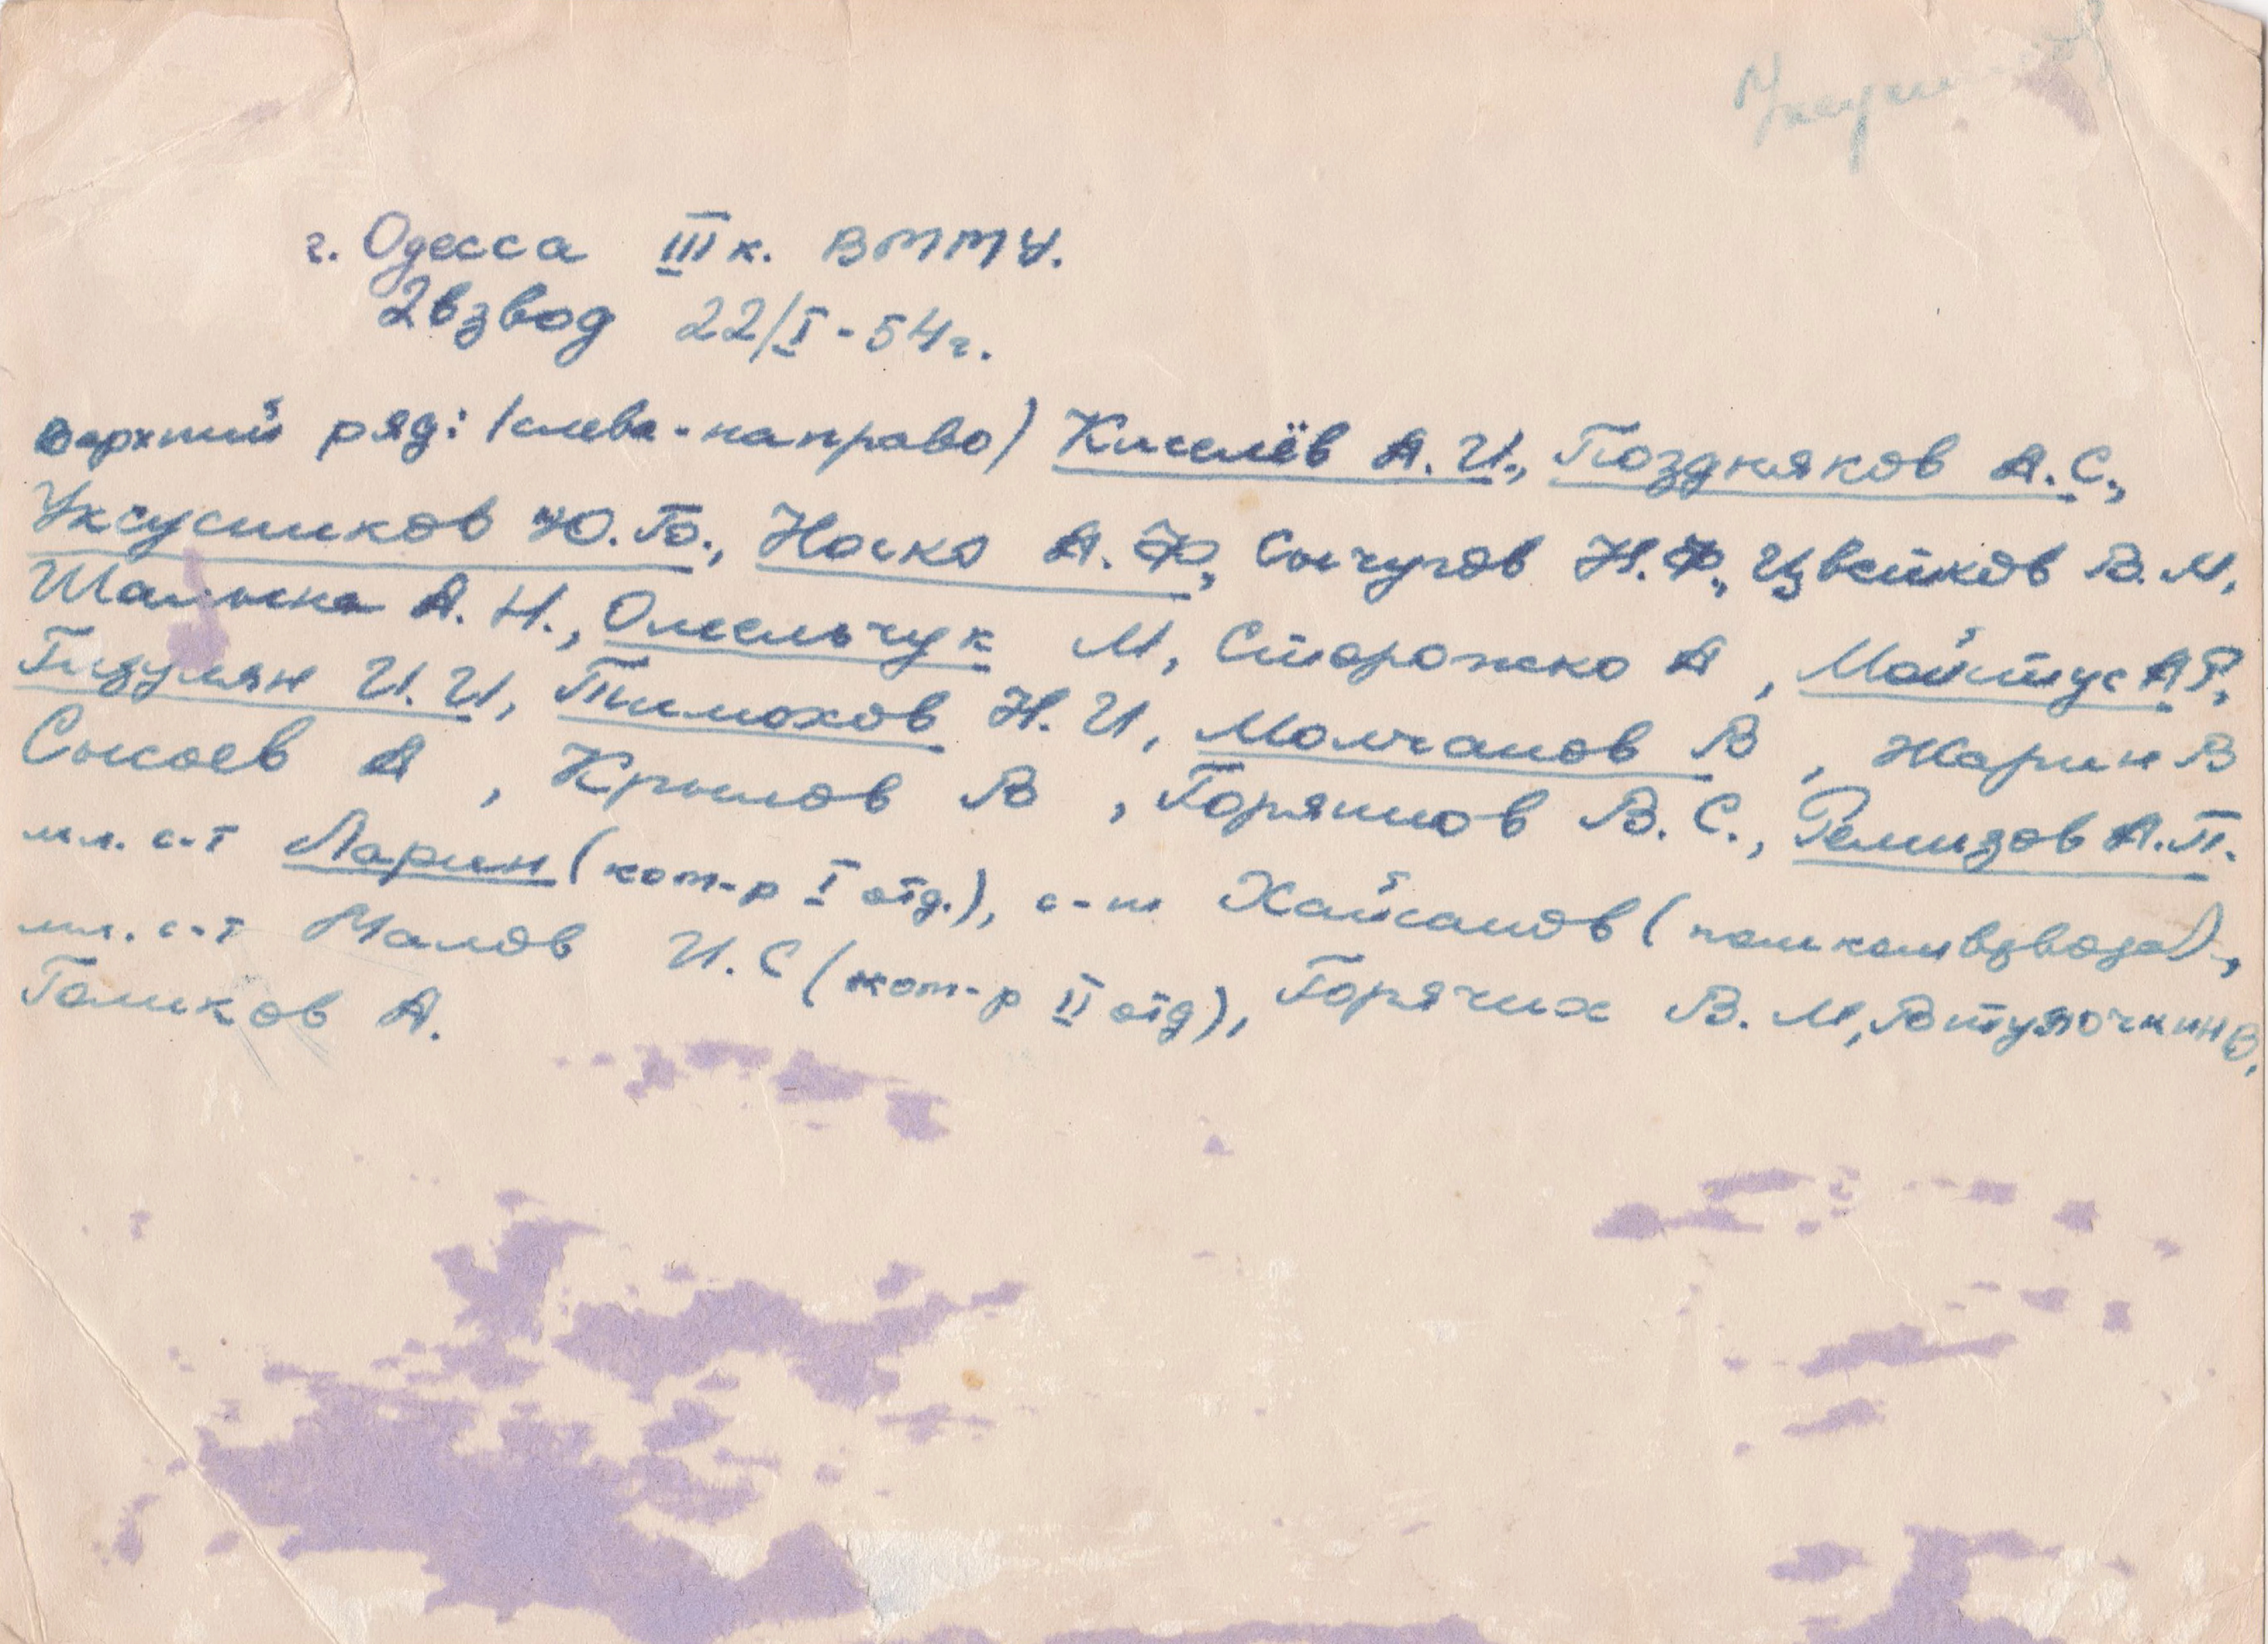 г. Одесса III к. ВМТУ.
2 взвод 22/I-54 г.
Верхний ряд: /слева-направо/ Киселёв А.И., Поздняков А.С.,
Уксусников Ю.Б., Носко А.Ф., Сычугов Н.Ф., Цвейков В.М.
А.Н., Омельчук М, Сторожко А, Мойтус А.Р.,
Гизулян И.И, Тимохов Н.И, Молчанов В, Жарин В
Сысоев А, Крылов В, Горяинов В.С., Ремизов А.П.
мл. с-т Ларин (ком-р I отд.), с-т Хайсанов (помкомвзвода),
мл. с-т Малов И.С (ком-р II отд), Горячих В.М, Втулочкин В.
Голиков А.